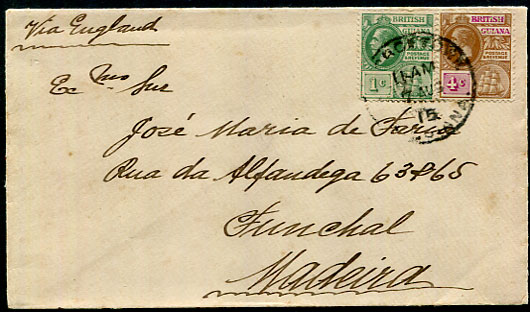 Via England
BRITISH
GUIANA
POSTAGE
& REVENUE
1c
BRITISH
GUIANA
POSTAGE
& REVENUE
4c
11 AM
15
Ex mo Snr
José Maria de Faria
Rua da Alfandega 63 & 65
Funchal
Madeira